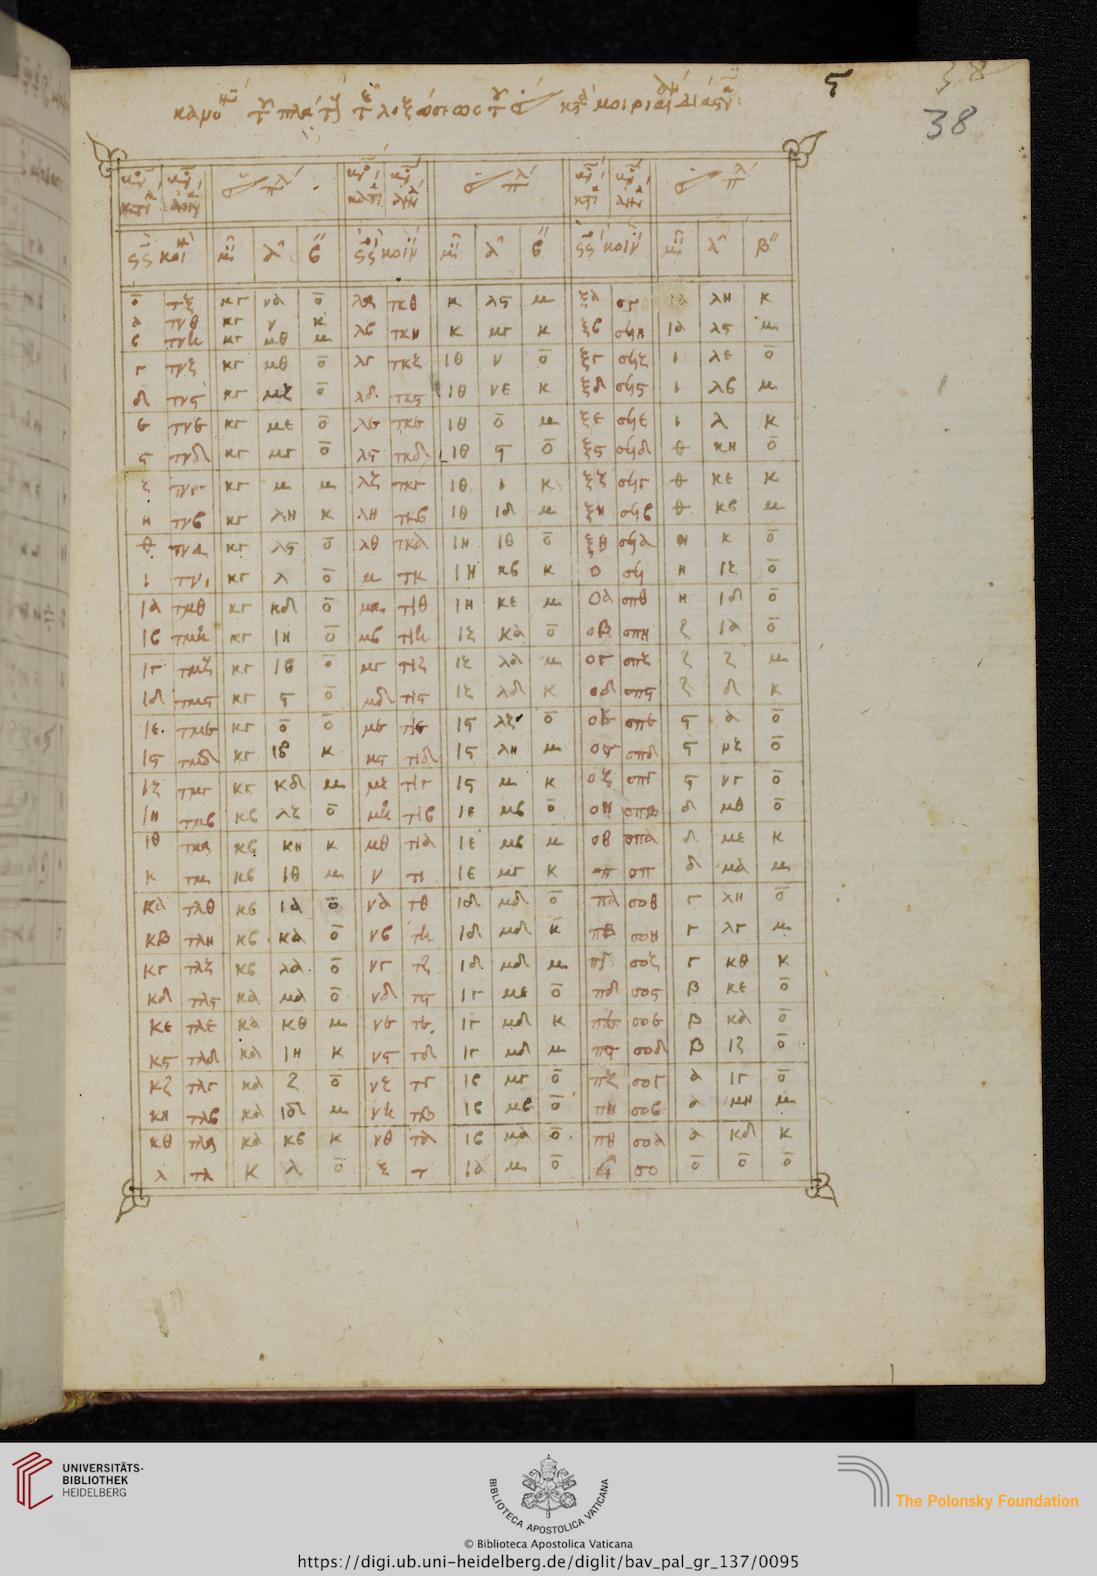 ο̄ τξ κγ να ο̄ λα τκθ κ λς μ ξα σϟθ ια λη κ
α τνθ κγ ν κ λβ τκη κ μγ κ ξβ σϟη ια λς μ
β τνη κγ μθ μ
γ τνζ κγ μθ ο̄ λγ τκζ ιθ ν ο̄ ξγ σϟζ ι λε ο̄
δ τνς κγ μζ ο̄ λδ τκς ιθ νε κ ξδ σϟς ι λβ μ
ε τνε κγ με ο̄ λε τκε ιθ ο̄ μ ξε σϟε ι λ κ
ς τνδ κγ μγ ο̄ λς τκδ ιθ ς ο̄ ξς σϟδ θ κη ο̄
ζ τνγ κγ μ μ λζ τκγ ιθ ι κ ξζ σϟγ θ κε κ
η τνβ κγ λη κ λη τκβ ιθ ιδ μ ξη σϟβ θ κβ μ
θ τνα κγ λς ο̄ λθ τκα ιη ιθ ο̄ ξθ σϟα η κ ο̄
ι τν κγ λ ο̄ μ τκ ιη κβ κ ο σϟ η ιζ ο̄
ια τμθ κγ κδ ο̄ μα τιθ ιη κε μ οα σπθ η ιδ ο̄
ιβ τμη κγ ιη ο̄ μβ τιη ιζ κα ο̄ οβ σπη ζ ια ο̄
ιγ τμζ κγ ιβ ο̄ μγ τιζ ιζ λα μ ογ σπζ ζ ζ μ
ιδ τμς κγ ς ο̄ μδ τις ιζ λδ κ οδ σπς ζ δ κ
ιε τμε κγ ο̄ ο̄ με τιε ις λζ ο̄ οε σπε ς α ο̄
ις τμδ κγ ιβ κ μς τιδ ις λη μ ος σπδ ς μζ ο̄
ιζ τμγ κγ κδ μ μζ τιγ ις μ κ οζ σπγ ς νγ ο̄
ιη τμβ κβ λζ ο̄ μη τιβ ιε μβ ο̄ οη σπβ δ μθ ο̄
ιθ τμα κβ κη κ μθ τια ιε μβ μ οθ σπα δ με κ
κ τμ κβ ιθ μ ν τι ιε μγ κ π σπ δ μα μ
κα τλθ κβ ια ο̄ να τθ ιδ μδ ο̄ πα σοθ γ λη ο̄
κβ τλη κβ κα ο̄ νβ τη ιδ μδ κ πβ σοη γ λγ μ
κγ τλζ κβ λα ο̄ νγ τζ ιδ μδ μ πγ σοζ γ κθ κ
κδ τλς κα μα ο̄ νδ τς ιγ με ο̄ πδ σος β κε ο̄
κε τλε κα κθ μ νε τε ιγ μδ κ πε σοε β κα ο̄
κς τλδ κα ιη κ νς τδ ιγ μδ μ πς σοδ β ιζ ο̄
κζ τλγ κα ζ ο̄ νζ τγ ιβ μγ ο̄ πζ σογ α ιγ ο̄
κη τλβ κα ιδ μ νη τβ ιβ μβ ο̄ πη σοβ α μη μ
κθ τλα κα κβ κ νθ τα ιβ μα ο̄ πθ σοα α κδ κ
λ τλ κ λ ο̄ ξ τ ια μ ο̄ ϟ σο ο̄ ο̄ ο̄
38
UNIVERSITÄTS-
BIBLIOTHEK
HEIDELBERG
BIBLIOTECA APOSTOLICA VATICANA
The Polonsky Foundation
© Biblioteca Apostolica Vaticana
https://digi.ub.uni-heidelberg.de/diglit/bav_pal_gr_137/0095